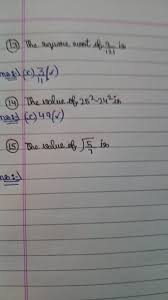 (13) The square root of 9/121 is
Ans:) (c) 3/11 (✓)
(14) The value of 25²-24² is
Ans:) (c) 49 (✓)
(15) The value of √5/7 is
Ans:-)